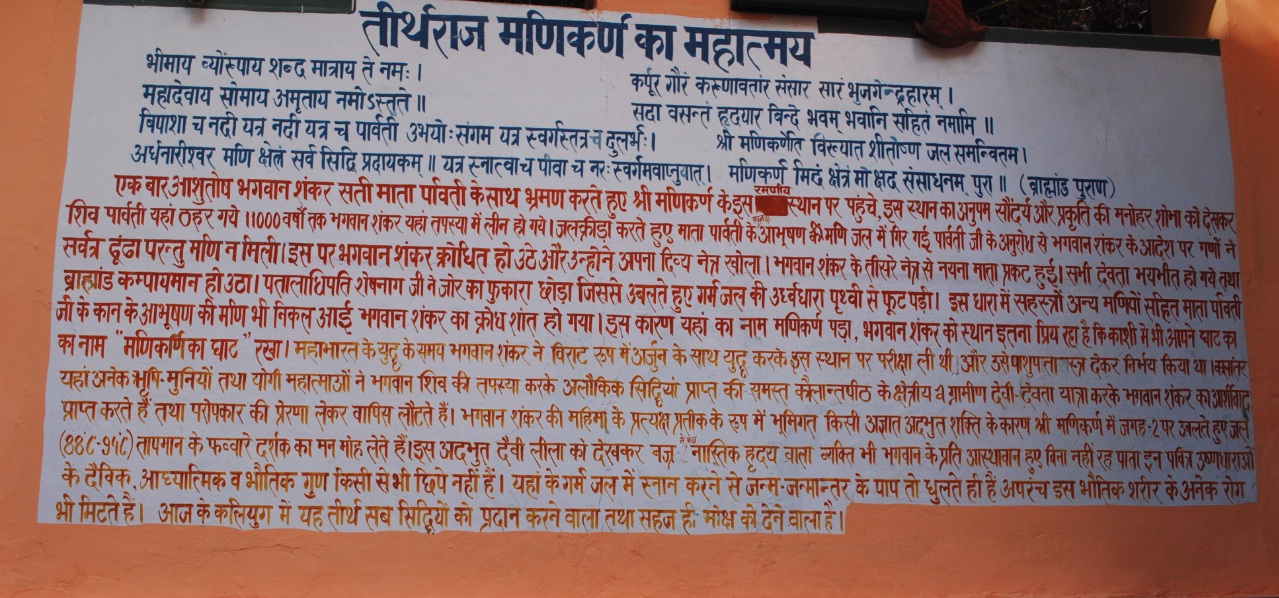 तीर्थराज मणिकर्ण का महात्मय
भीमाय व्योंरुपाय शब्द मात्राय ते नमः।
महादेवाय सोमाय अमृताय नमोऽस्तुते॥
कर्पूर गौरं करुणावतारं संसार सारं भुजगेन्द्रहारम्।
सदा वसन्तं हृदयार विन्दे भवम् भवानि सहितं नमामि॥
विपाशा च नदी यत्र नदी यत्र च पार्वती उभयोः संगम यत्र स्वर्गस्तत्र च दुलर्भः। श्री मणिकर्णेति विख्यात शीतोष्ण जल समन्वितम।
अर्धनारीश्वर मणि क्षेत्रं सर्व सिद्वि प्रदायकम॥ यत्र स्नात्वाच पीवा च नरः स्वर्गमवाप्नुयात। मणिकर्ण मिदं क्षेत्रं मोक्षद संसाधनम् पुरा॥ (ब्राह्मांड पुराण)
एक बार आशुतोष भगवान शंकर सती माता पार्वती के साथ भ्रमण करते हुए श्री मणिकर्ण के इस रमणीय स्थान पर पहुंचे, इस स्थान का अनुपम सौंदर्य और प्रकृति की मनोहर शोभा को देखकर
शिव पार्वती यहां ठहर गये।11000 वर्षो तक भगवान शंकर यहां तपस्या में लीन हो गये। जलक्रीड़ा करते हुए माता पार्वती के आभूषण की मणि जल में गिर गई पार्वती जी के अनुरोध से भगवान शंकर के आदेश पर गणों ने
सर्वत्र ढूंढा परन्तु मणि न मिली। इस पर भगवान शंकर क्रोधित हो उठे और उन्होने अपना दिव्य नेत्र खोला। भगवान शंकर के तीसरे नेत्र से नयना माता प्रकट हुई। सभी देवता भयभीत हो गये तथा
ब्राह्मांड कम्पायमान हो उठा। पतालाधिपति शेषनाग जी ने जोर का फुकारा छोड़ा जिससे उबलते हुए गर्म जल की उर्ध्वधारा पृथ्वी से फूट पड़ी। इस धारा में सहस्त्रों अन्य मणियों सहित माता पार्वती
जी के कान के आभूषण की मणि भी निकल आई भगवान शंकर का क्रोध शांत हो गया। इस कारण यहां का नाम मणिकर्ण पड़ा, भगवान शंकर को स्थान इतना प्रिय रहा है कि काशी में भी आपने घाट का
का नाम "मणिकर्णिका घाट" रखा। महाभारत के युद्व के समय भगवान शंकर ने विराट रुप में अर्जुन के साथ युद्व करके इस स्थान पर परीक्षा ली थी, और उसे पाशुपतास्त्र देकर निर्भय किया था।
यहां अनेक ऋषि-मुनियों तथा योगी महात्माओं ने भगवान शिव की तपस्या करके अलौकिक सिद्वियां प्राप्त की समस्त के क्षेत्रीय व ग्रामीण देवी-देवता यात्रा करके भगवान शंकर का आर्शीवाद
प्राप्त करते हैं तथा परोपकार की प्रेरणा लेकर वापिस लौटते हैं। भगवान शंकर की महिमा के प्रत्यक्ष प्रतीक के रुप में भूमिगत किसी अज्ञात अदभुत शक्ति के कारण श्री मणिकर्ण में जगह-2 पर उबलते हुए जल
तापमान के फव्वारे दर्शक का मन मोह लेते हैं। इस अदभुत दैवी लीला को देखकर नास्तिक हृदय वाला व्यक्ति भी भगवान के प्रति आस्थावान हुए बिना नहीं रह पाता इन पवित्र उष्णधाराओं
के दैविक, आध्यात्मिक व भौतिक गुण किसी से भी छिपे नहीं हैं। यहां के गर्म जल में स्नान करने से जन्म-जन्मान्तर के पाप तो धुलते ही हैं अपरंच इस भौतिक शरीर के अनेक रोग
भी मिटते हैं। आज के कलियुग में यह तीर्थ सब सिद्वियों को प्रदान करने वाला तथा सहज ही मोक्ष को देने वाला है।